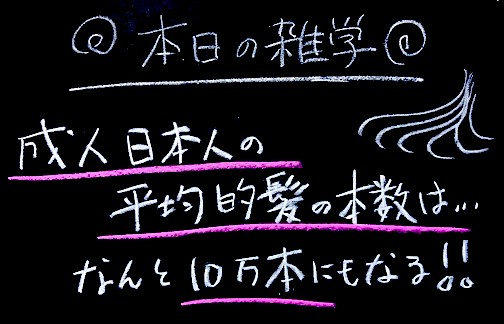 本日の雑学
成人日本人の
平均的髪の本数は...
なんと10万本にもなる!!